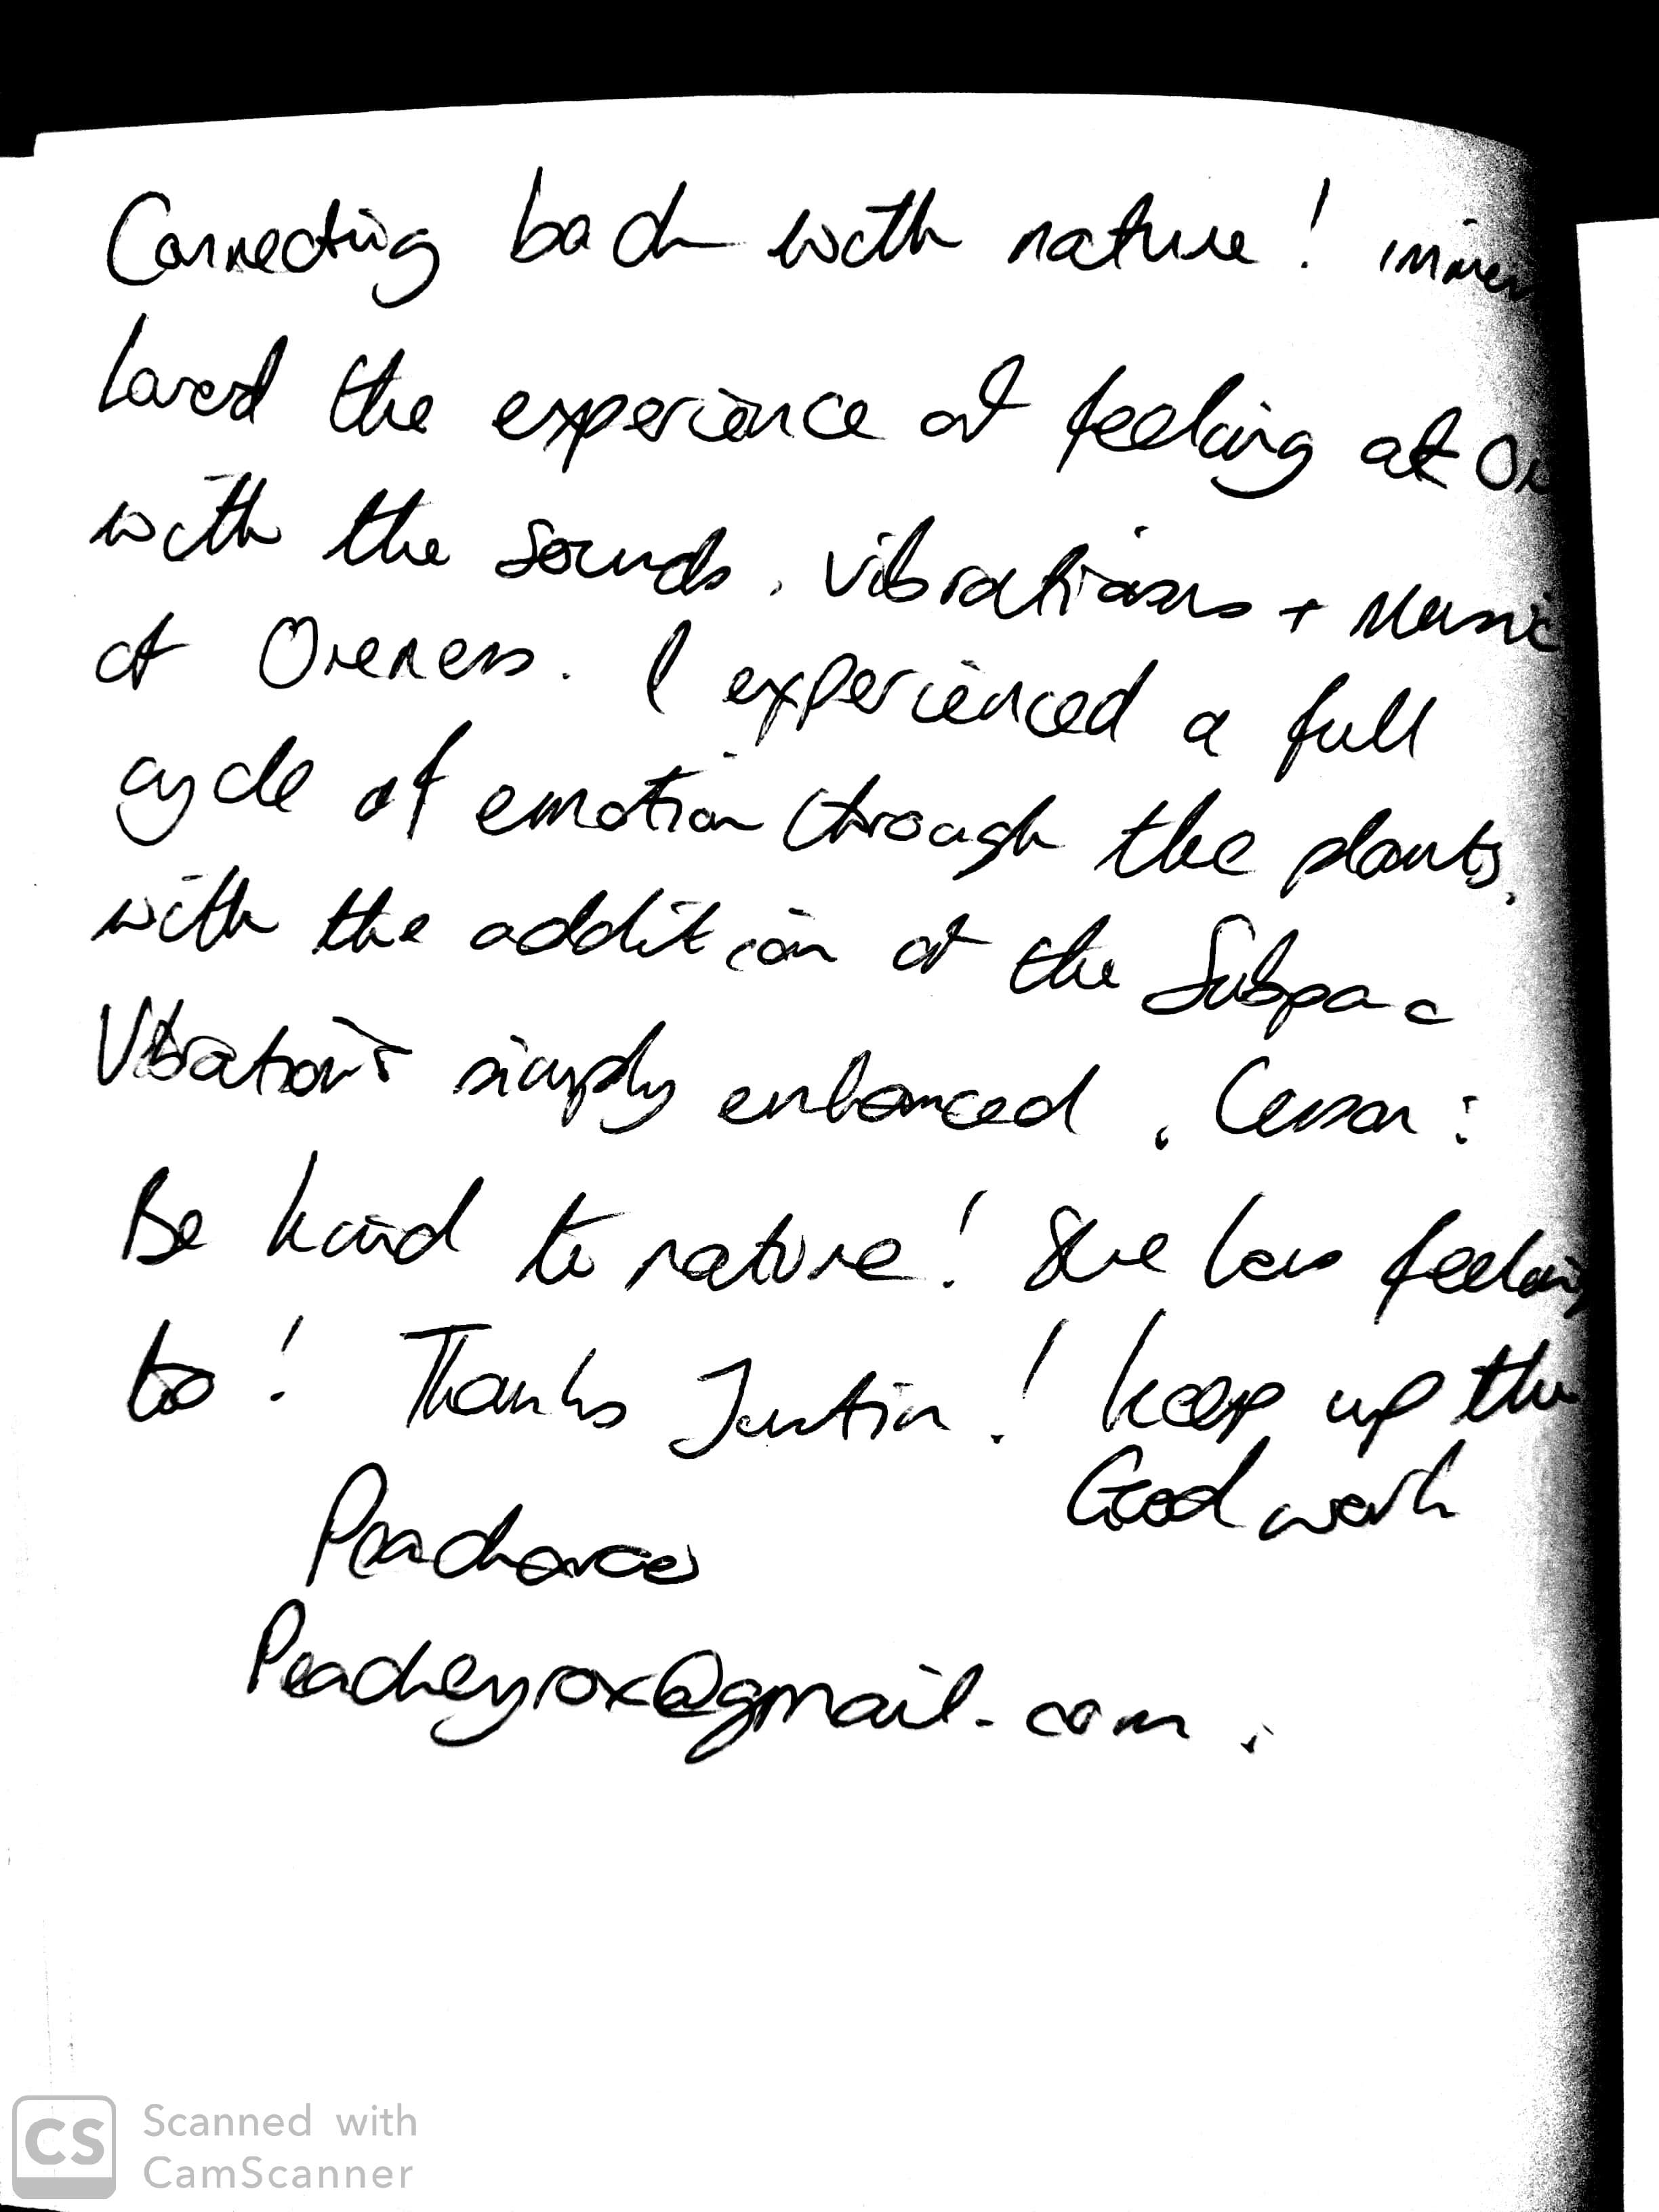 Connecting back with nature!
loved the experience of feeling at
with the sounds, vibrations + Music
of Oneness. I experienced a full
cycle of emotion through the plants,
with the addition of the Subpac
Vibrations simply enhanced. Lesson:
Be kind to nature! She has feelings
to! Thanks Justin! keep up the
Good work
Peacheyrox@gmail.com.
CS Scanned with
CamScanner